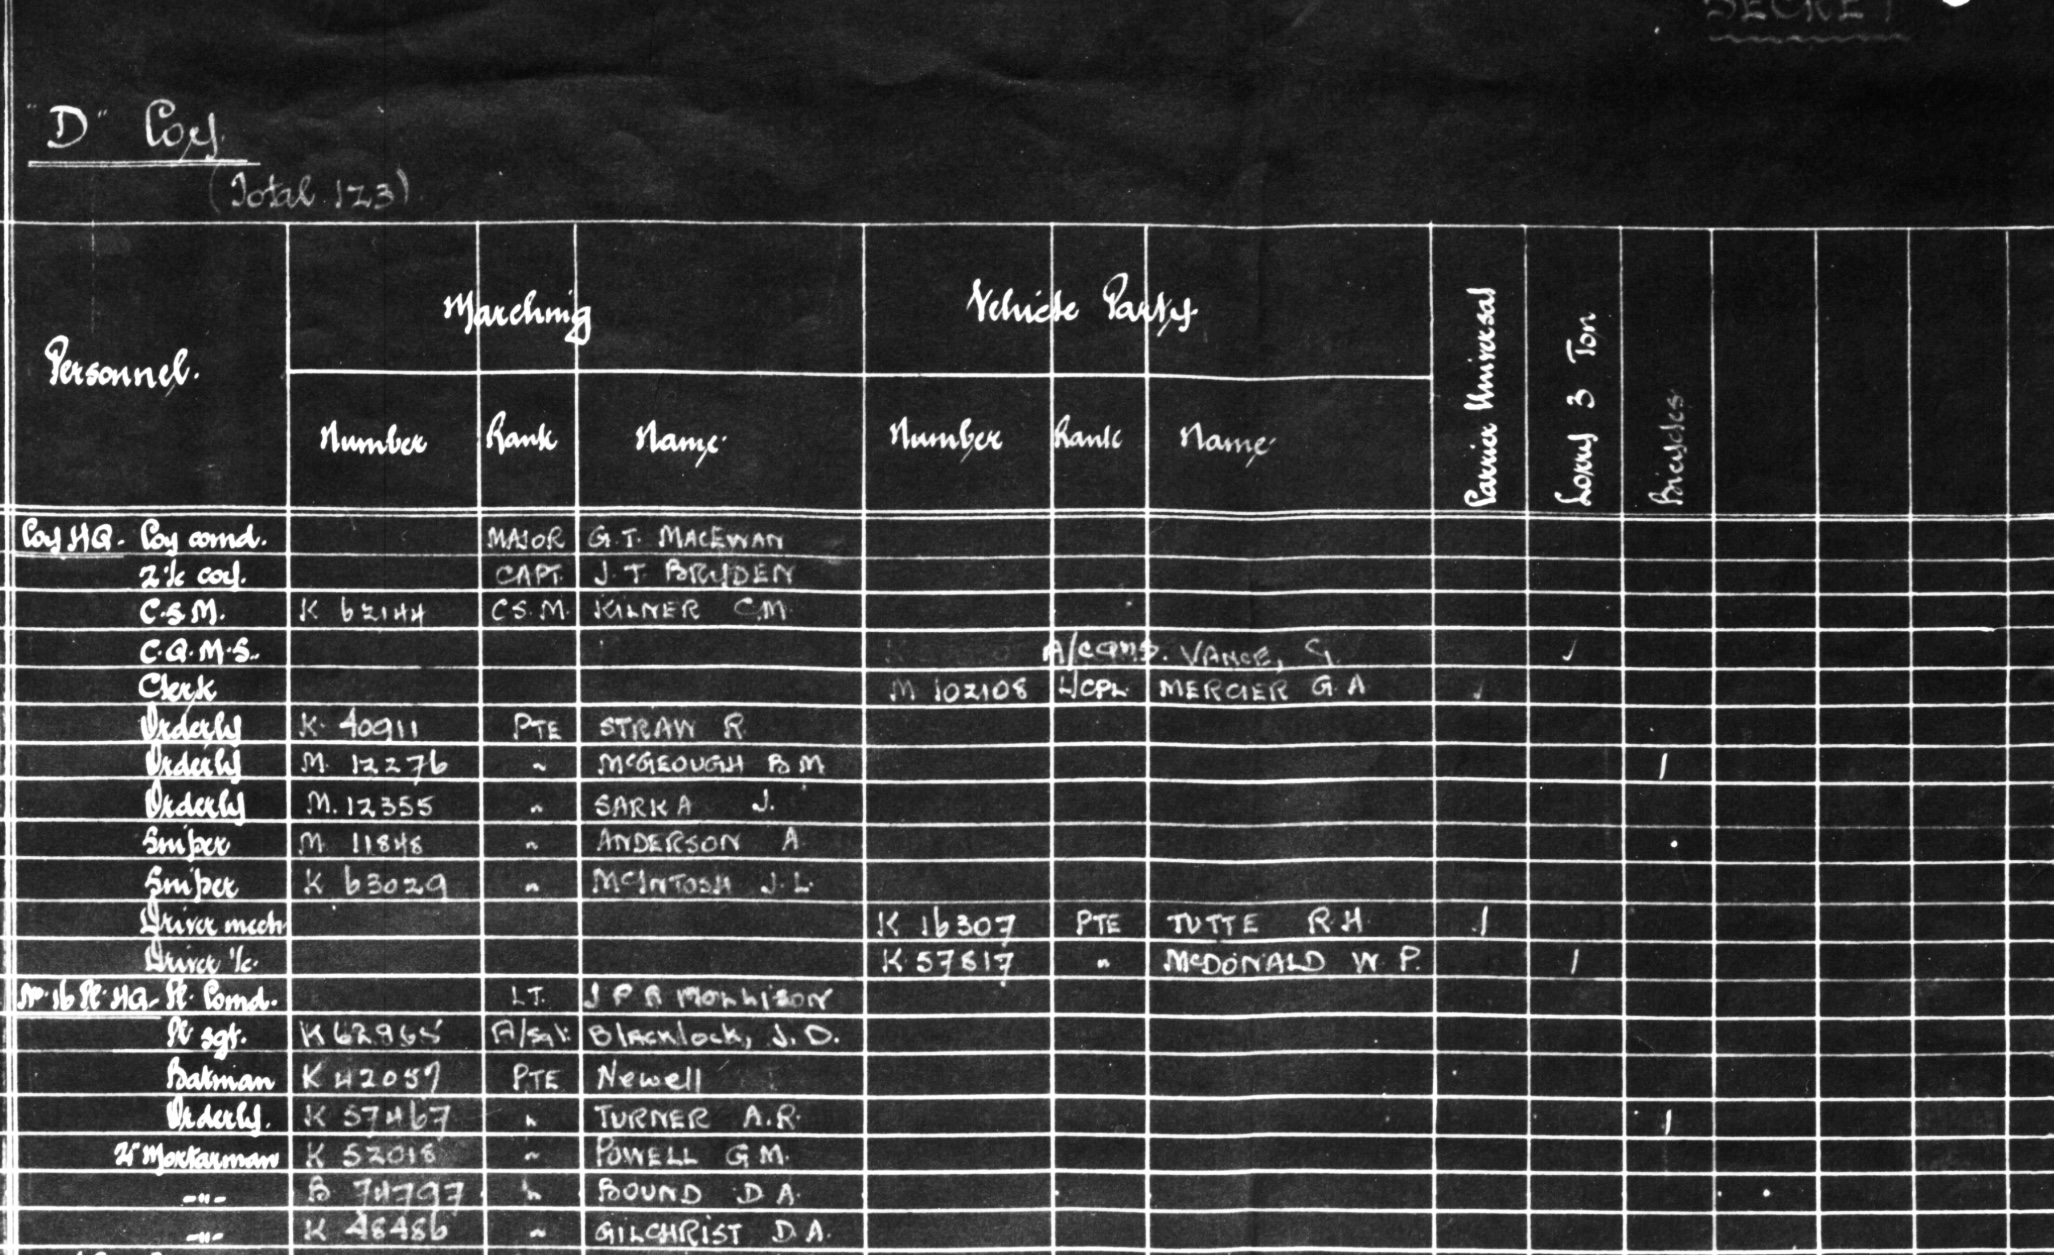 SECRET
"D" Coy.
(Total 123)
Personnel.
Marching
Vehicle Party
Carrier Universal
Lorry 3 Ton
Bicycles
Number Rank Name
Number Rank Name
Coy HQ. Coy comd. MAJOR G.T. MACEWAN
2 i/c coy. CAPT. J.T. BRYDEN
C.S.M. K 62144 C.S.M. KILNER C.M.
C.Q.M.S. A/CQMS. VANCE, G. ✓
Clerk M 102108 L/CPL MERCIER G A ✓
Orderly K 40911 PTE STRAW R.
Orderly M 12276 " McGEOUGH B M 1
Orderly M. 12355 " SARKA J.
Sniper M 11848 " ANDERSON A
Sniper K 63029 " McINTOSH J.L.
Driver mech K 16307 PTE TUTTE R.H. 1
Driver i/c. K 57817 " McDONALD W.P. 1
No. 16 Pl. HQ. Pl. Comd. LT. J P R MOLLISON
Pl sgt. K 62965 A/Sgt. Blacklock, J. D.
Batman K 42057 PTE Newell
Orderly. K 57467 " TURNER A.R. 1
2" Mortarman K 52018 " POWELL G M.
-"- B 74797 " BOUND D A.
-"- K 48486 " GILCHRIST D A.